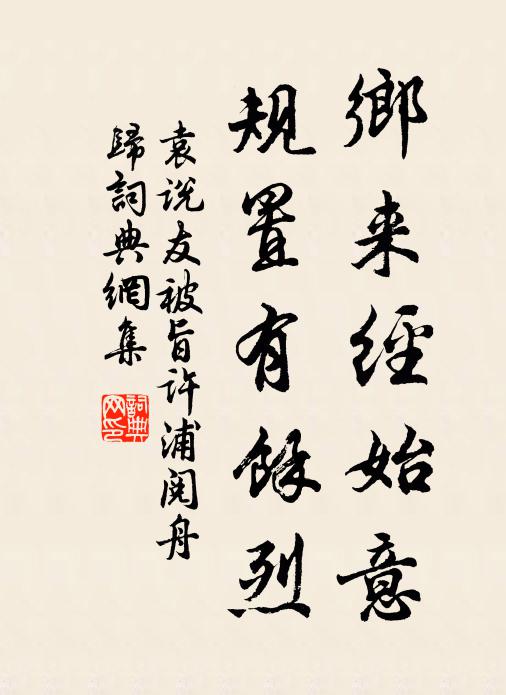 鄉来經始意
規置有餘烈
袁说友被旨许浦阅舟
歸詞典網集
詞典
网印